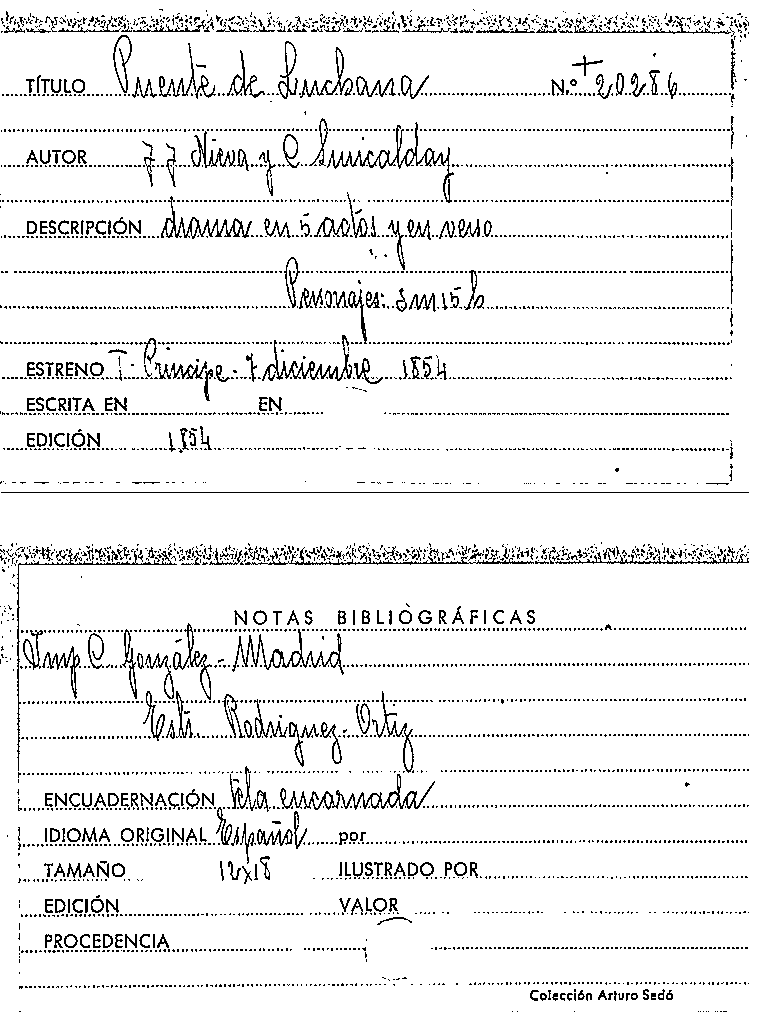 TÍTULO Puente de Luchana N.º + 20286
AUTOR J J Nieva y C Suricalday
DESCRIPCIÓN drama en 5 actos y en verso
Personajes: 3m 15 h
ESTRENO T. Principe - 7 diciembre 1854
ESCRITA EN EN
EDICIÓN 1854
NOTAS BIBLIOGRÁFICAS
Imp C González - Madrid
Estr. Rodriguez - Ortiz
ENCUADERNACIÓN tela encarnada
IDIOMA ORIGINAL Español por
TAMAÑO 12x18 ILUSTRADO POR
EDICIÓN VALOR
PROCEDENCIA
Colección Arturo Sedó